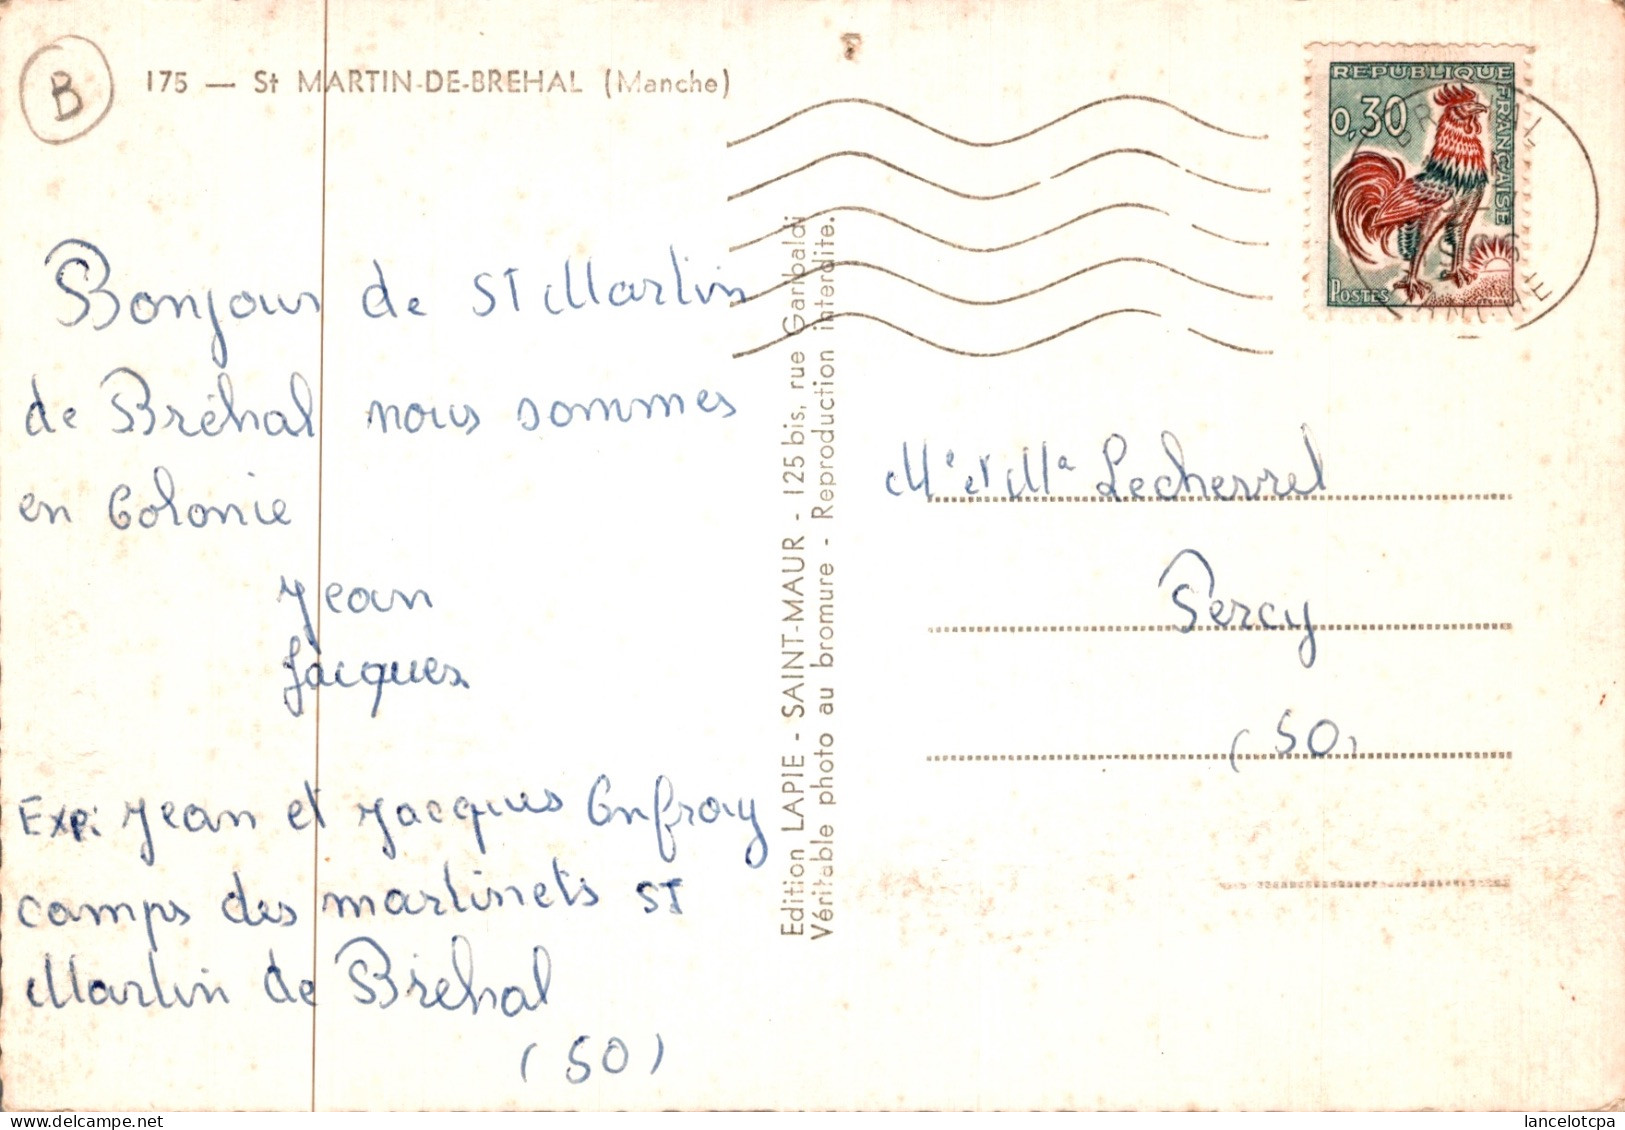 B
175 — St MARTIN-DE-BREHAL (Manche)
REPUBLIQUE
FRANÇAISE
0,30
POSTES
Bonjour de ST Martin
de Bréhal nous sommes
en Colonie
Jean
Jacques
Exp: Jean et Jacques Enfroy
camps des martinets ST
Martin de Bréhal
(50)
Edition LAPIE - SAINT-MAUR - 125 bis, rue Garibaldi
Véritable photo au bromure - Reproduction interdite.
Mr et Me Lecherrel
Percy
(50)
lancelotcpa